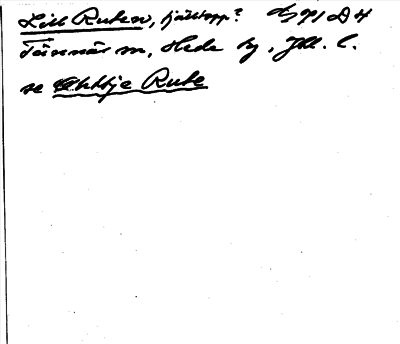 Lill Ruten, fjälltopp? dsg91 D4
Tännäs sn, Hede tg, Jtl. l.
se Ohktje Rute